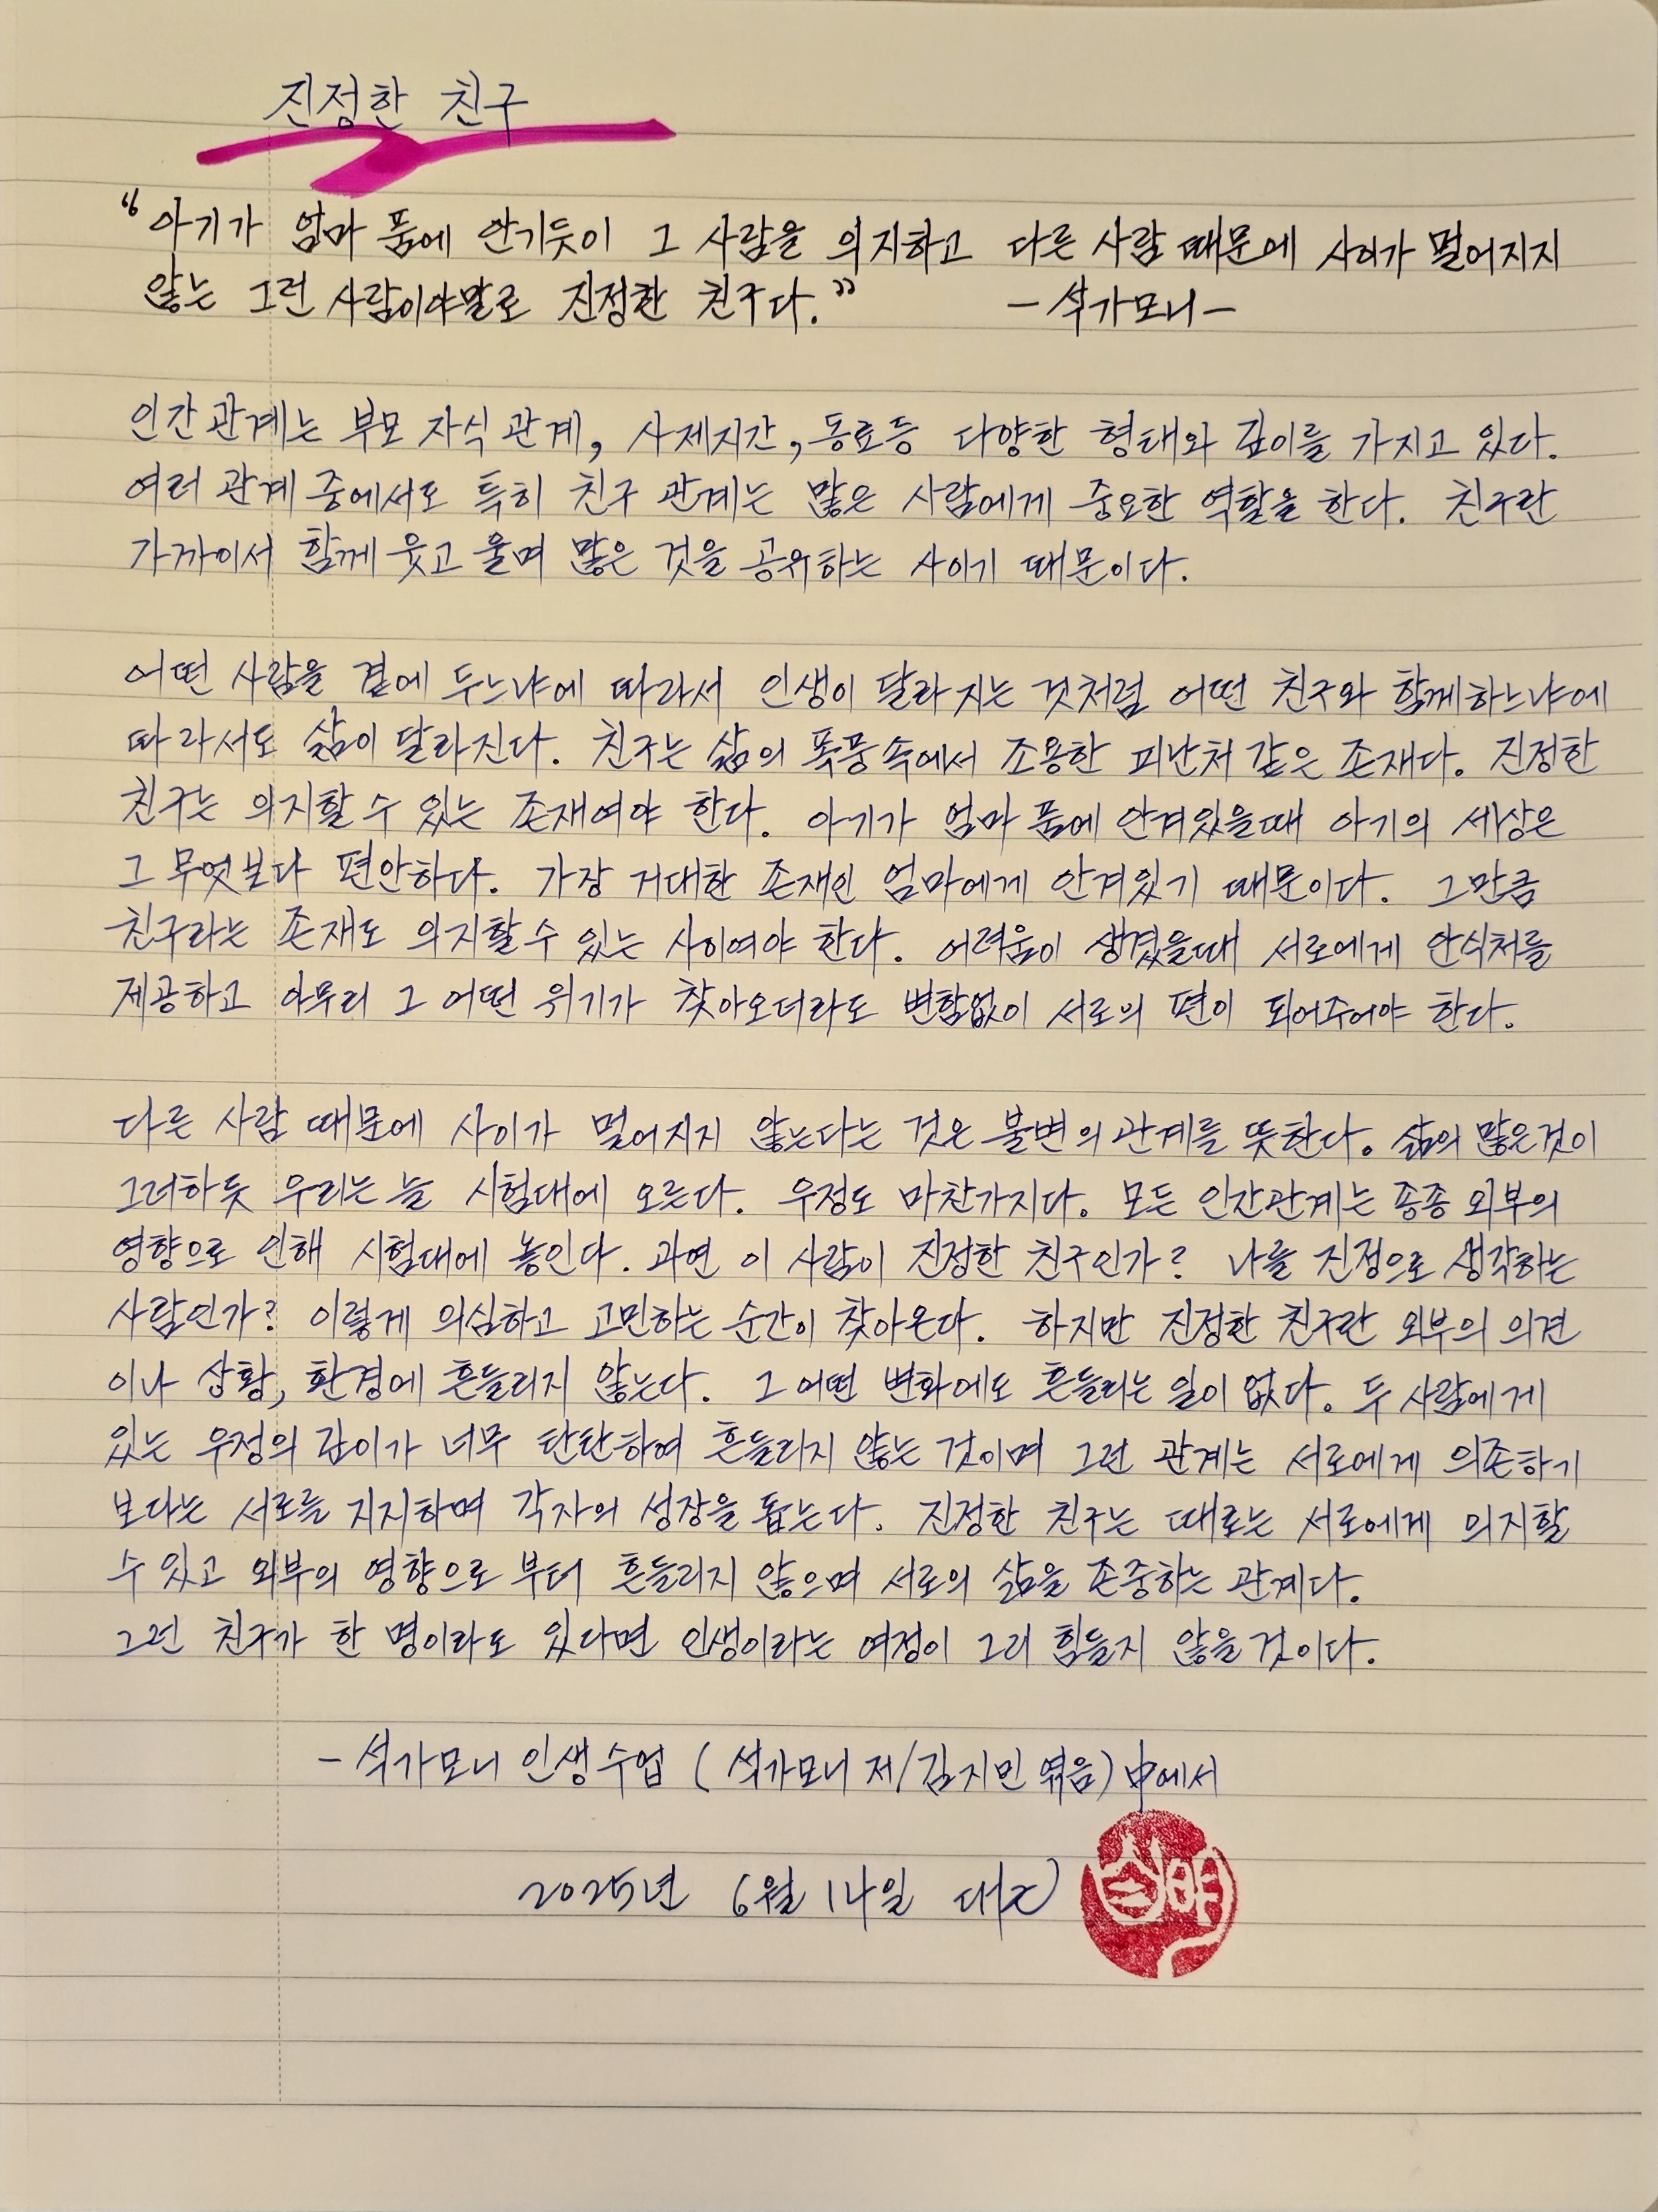 진정한 친구
“아기가 엄마 품에 안기듯이 그 사람을 의지하고 다른 사람 때문에 사이가 멀어지지
않는 그런 사람이야말로 진정한 친구다.” -석가모니-
인간관계는 부모 자식 관계, 사제지간, 동료등 다양한 형태와 깊이를 가지고 있다.
여러 관계 중에서도 특히 친구 관계는 많은 사람에게 중요한 역할을 한다. 친구란
가까이서 함께 웃고 울며 많은 것을 공유하는 사이기 때문이다.
어떤 사람을 곁에 두느냐에 따라서 인생이 달라지는 것처럼 어떤 친구와 함께하느냐에
따라서도 삶이 달라진다. 친구는 삶의 폭풍속에서 조용한 피난처 같은 존재다. 진정한
친구는 의지할 수 있는 존재여야 한다. 아기가 엄마 품에 안겨있을때 아기의 세상은
그 무엇보다 편안하다. 가장 거대한 존재인 엄마에게 안겨있기 때문이다. 그만큼
친구라는 존재도 의지할 수 있는 사이여야 한다. 어려움이 생겼을때 서로에게 안식처를
제공하고 아무리 그 어떤 위기가 찾아오더라도 변함없이 서로의 편이 되어주어야 한다.
다른 사람 때문에 사이가 멀어지지 않는다는 것은 불변의 관계를 뜻한다. 삶의 많은것이
그러하듯 우리는 늘 시험대에 오른다. 우정도 마찬가지다. 모든 인간관계는 종종 외부의
영향으로 인해 시험대에 놓인다. 과연 이 사람이 진정한 친구인가? 나를 진정으로 생각하는
사람인가? 이렇게 의심하고 고민하는 순간이 찾아온다. 하지만 진정한 친구란 외부의 의견
이나 상황, 환경에 흔들리지 않는다. 그 어떤 변화에도 흔들리는 일이 없다. 두 사람에게
있는 우정의 깊이가 너무 탄탄하여 흔들리지 않는 것이며 그런 관계는 서로에게 의존하기
보다는 서로를 지지하며 각자의 성장을 돕는다. 진정한 친구는 때로는 서로에게 의지할
수 있고 외부의 영향으로 부터 흔들리지 않으며 서로의 삶을 존중하는 관계다.
그런 친구가 한 명이라도 있다면 인생이라는 여정이 그리 힘들지 않을 것이다.
- 석가모니 인생수업 (석가모니 저/김지민 엮음) 中에서
2025년 6월 14일